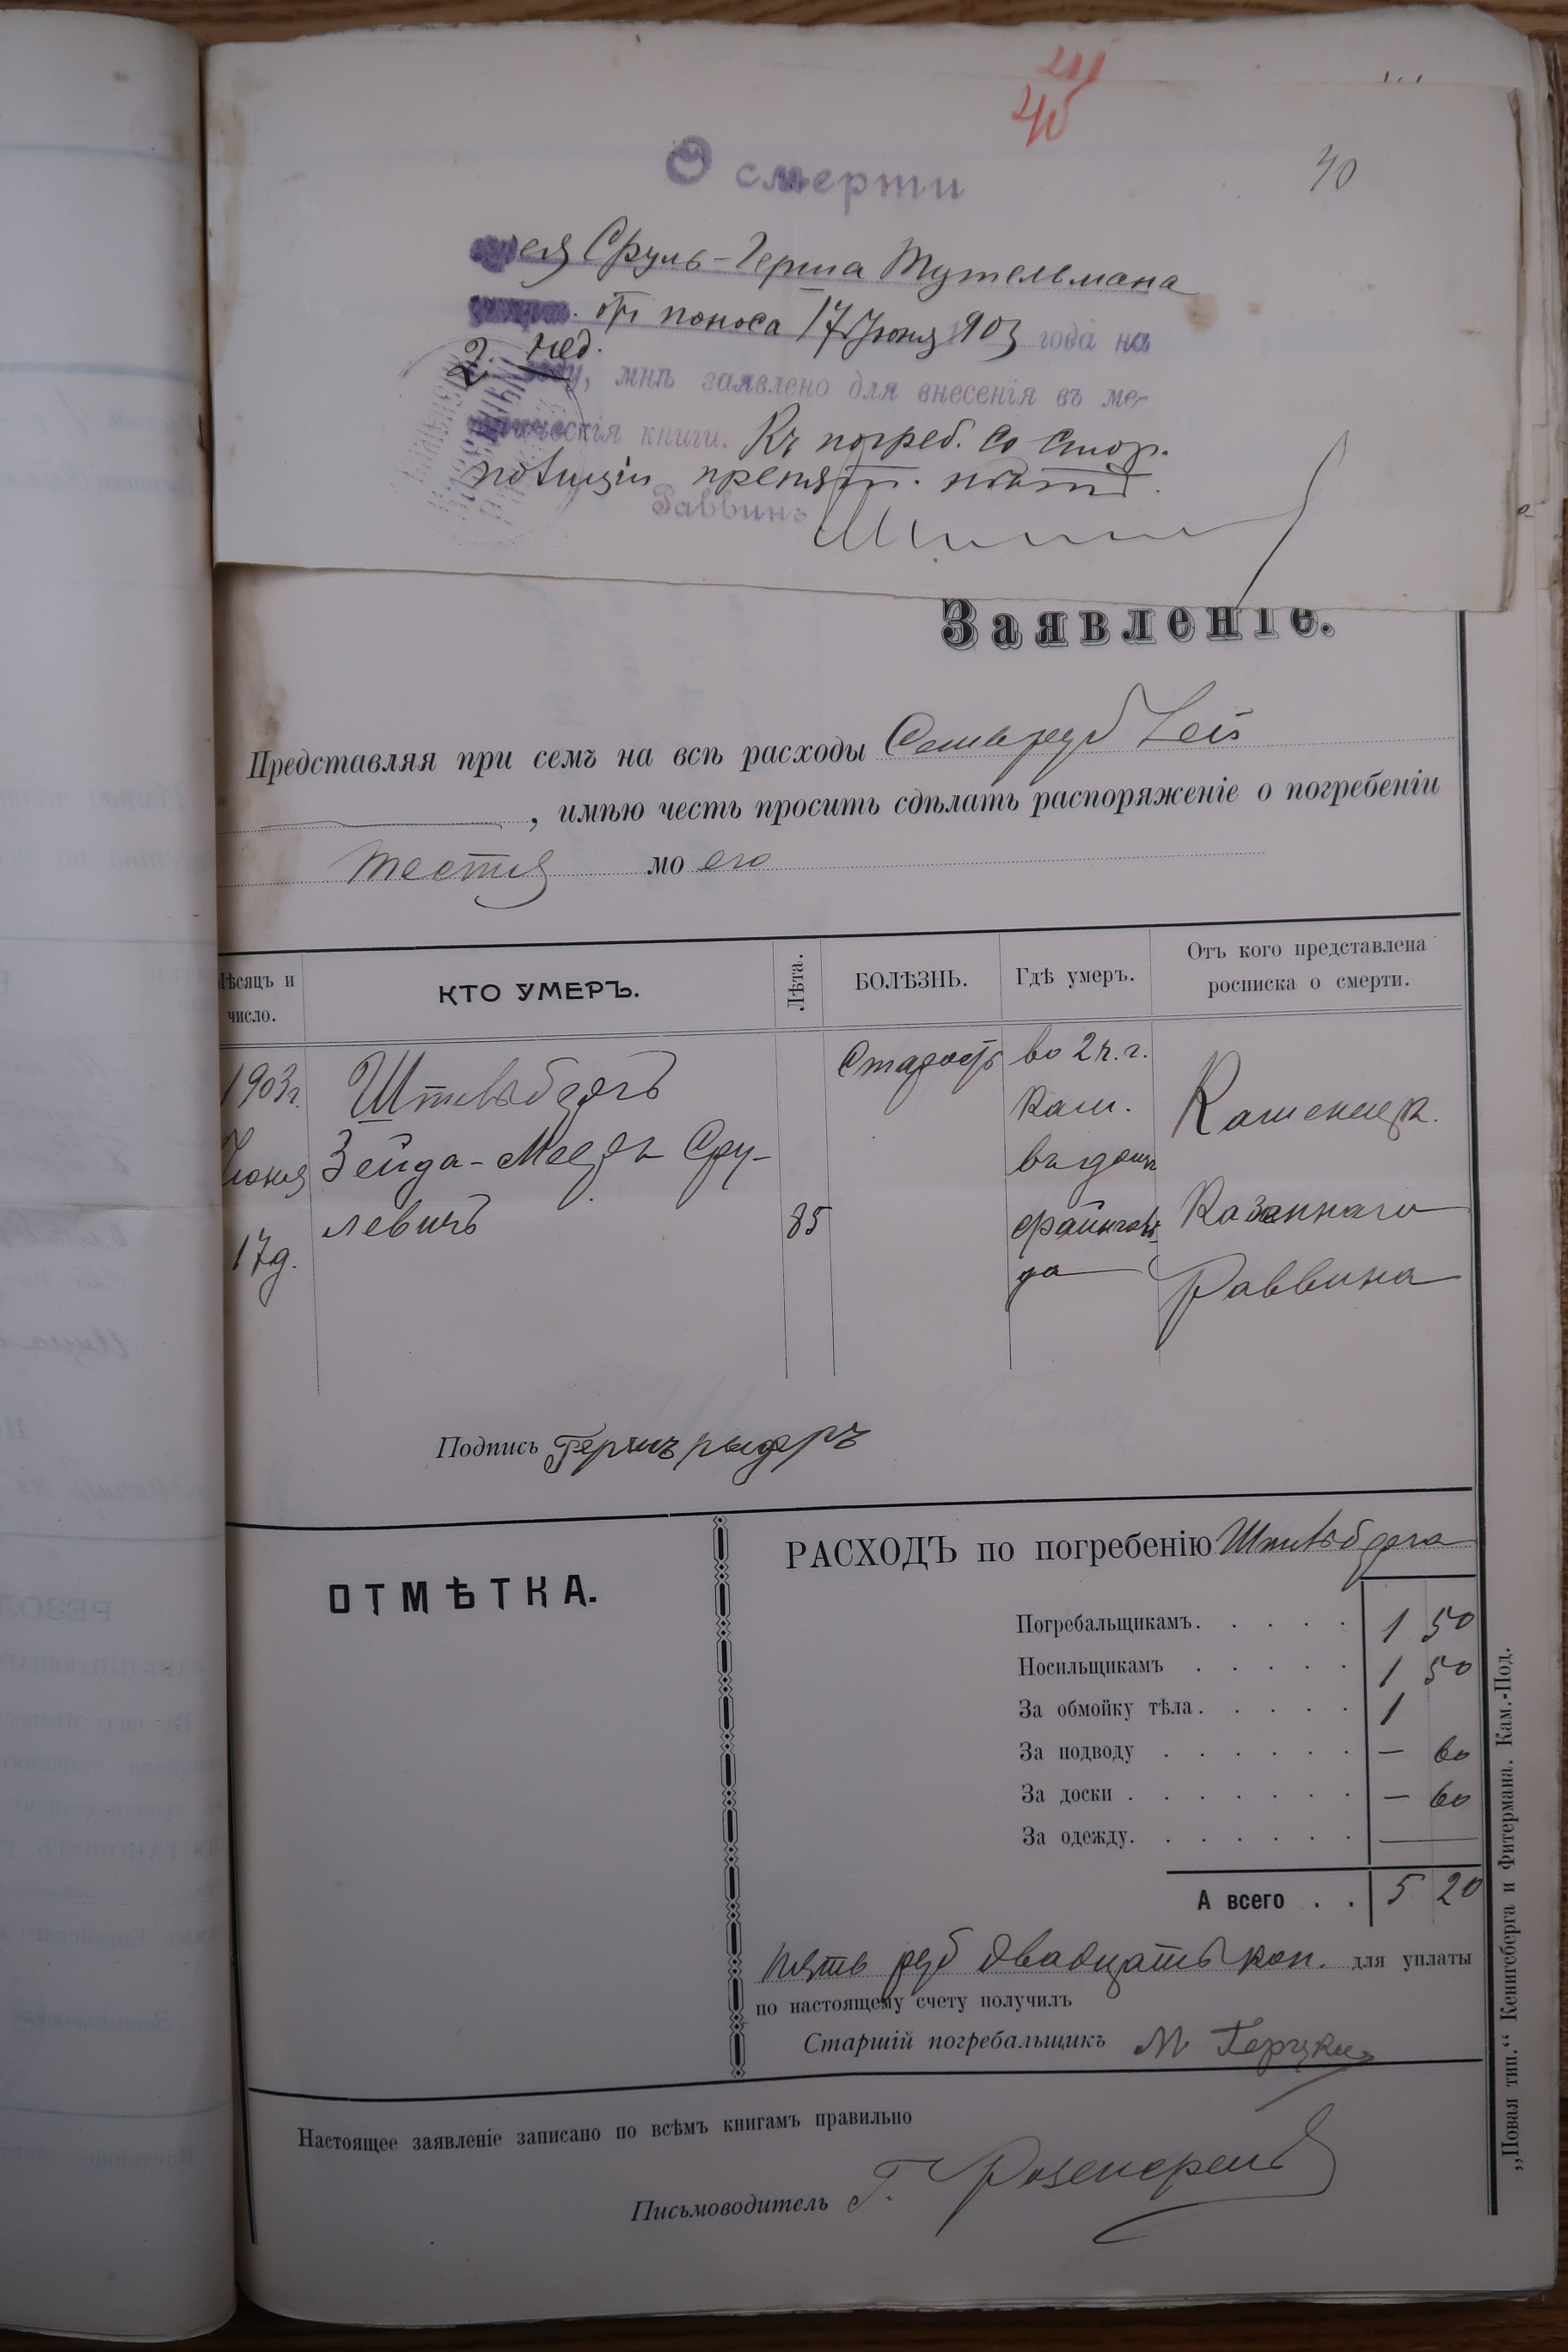 211
40
40
О смерти
Сруль-Герша Тутельмана
отъ поноса 17 Іюня 1903 года на
2 нед.
году, мнѣ заявлено для внесенія въ ме-
трическія книги. Къ погреб. со стор.
полиціи препят.
Раввинъ
Заявленіе.
Представляя при семъ на всѣ расходы Семь руб
, имѣю честь просить сдѣлать распоряженіе о погребеніи
тестя моего
Мѣсяцъ и число.
КТО УМЕРЪ.
Лѣта.
БОЛѢЗНЬ.
Гдѣ умеръ.
Отъ кого представлена росписка о смерти.
1903г. Іюня 17д.
Зейда-Мееръ Сру-
левичъ
85
Старость
во 2 ч. г.
Кам.
въ домѣ
Каменецк.
Казеннаго
Раввина
Подпись Гершъ
ОТМѢТКА.
РАСХОДЪ по погребенію
Погребальщикамъ. . . . . 1 50
Носильщикамъ . . . . . 1 50
За обмойку тѣла. . . . . 1
За подводу . . . . . . — 60
За доски . . . . . . . — 60
За одежду. . . . . . . —
А всего . . 5 20
пять руб двадцать коп. для уплаты
по настоящему счету получилъ
Старшій погребальщикъ М.
Настоящее заявленіе записано по всѣмъ книгамъ правильно
Письмоводитель Г.
„Новая тип.“ Кенигсберга и Фитермана. Кам.-Под.